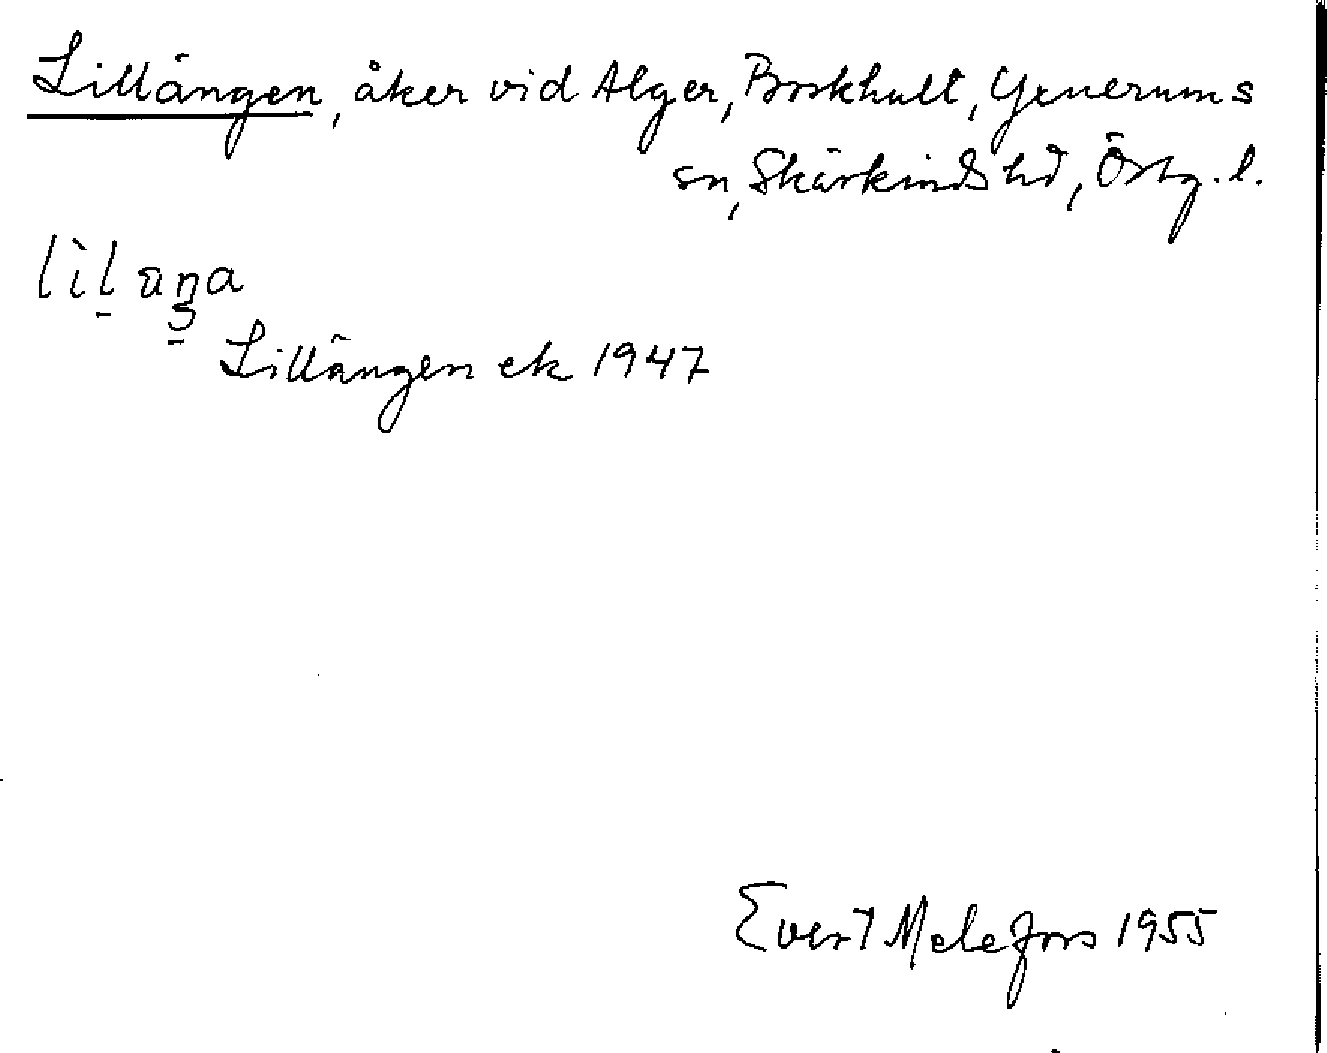 Lillängen, åker vid Alger, Borkhult, Yxnerums
sn, Skärkinds hd, Östg. l.
lìl äŋa
Lillängen ek 1947
Evert Melefors 1955